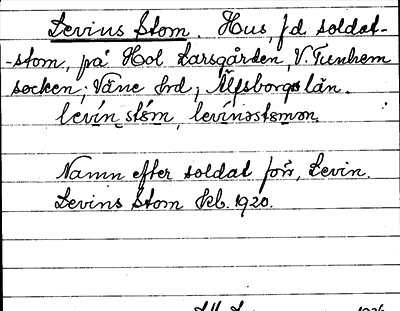 Levins Stom. Hus, f.d. soldat-
-stom, på Hol Larsgården, V. Tunhem
socken, Väne hrd, Älfsborgs län.
levín_stóm, levínsstomən
Namn efter soldat förr, Levin.
Levins Stom kb. 1920.